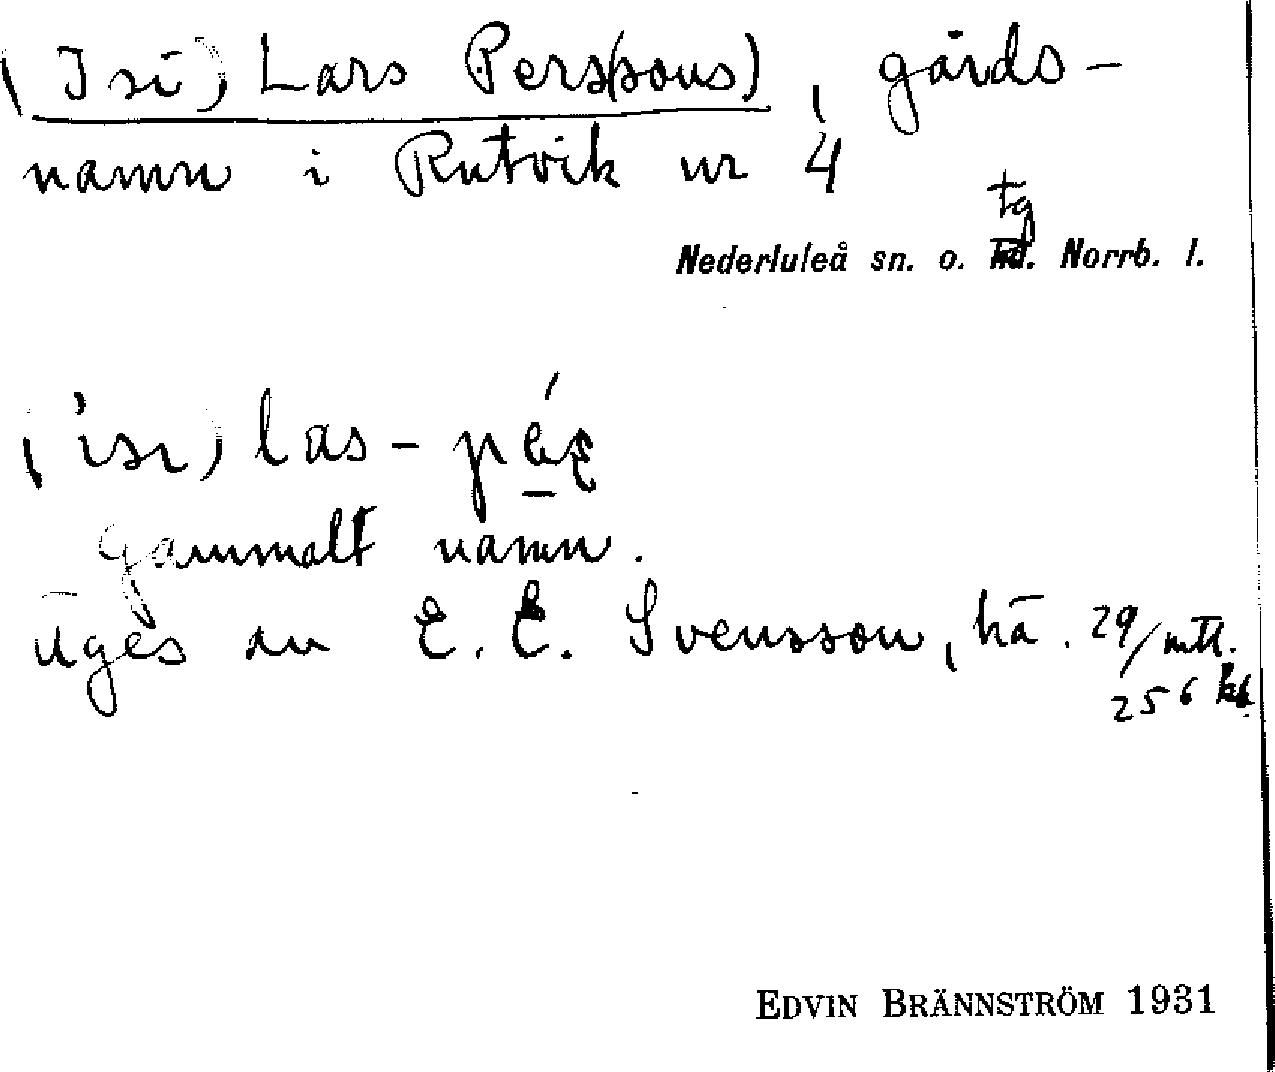 (Isi) Lars Pers(sons), gårds-
namn i Rutvik nr 4
tg
Nederluleå sn. o. hd. Norrb. l.
('ısı) las-
gammalt namn.
äges av E. E. Svensson, hä. 29/mtl.
256
EDVIN BRÄNNSTRÖM 1931